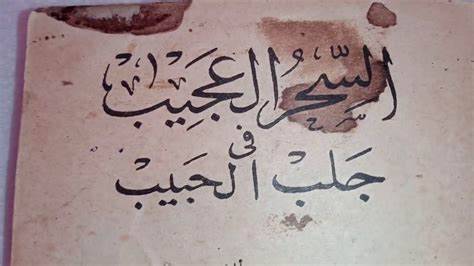 السِّحْرُ العَجِيبْ
فى
جَلبْ الحَبِيبْ